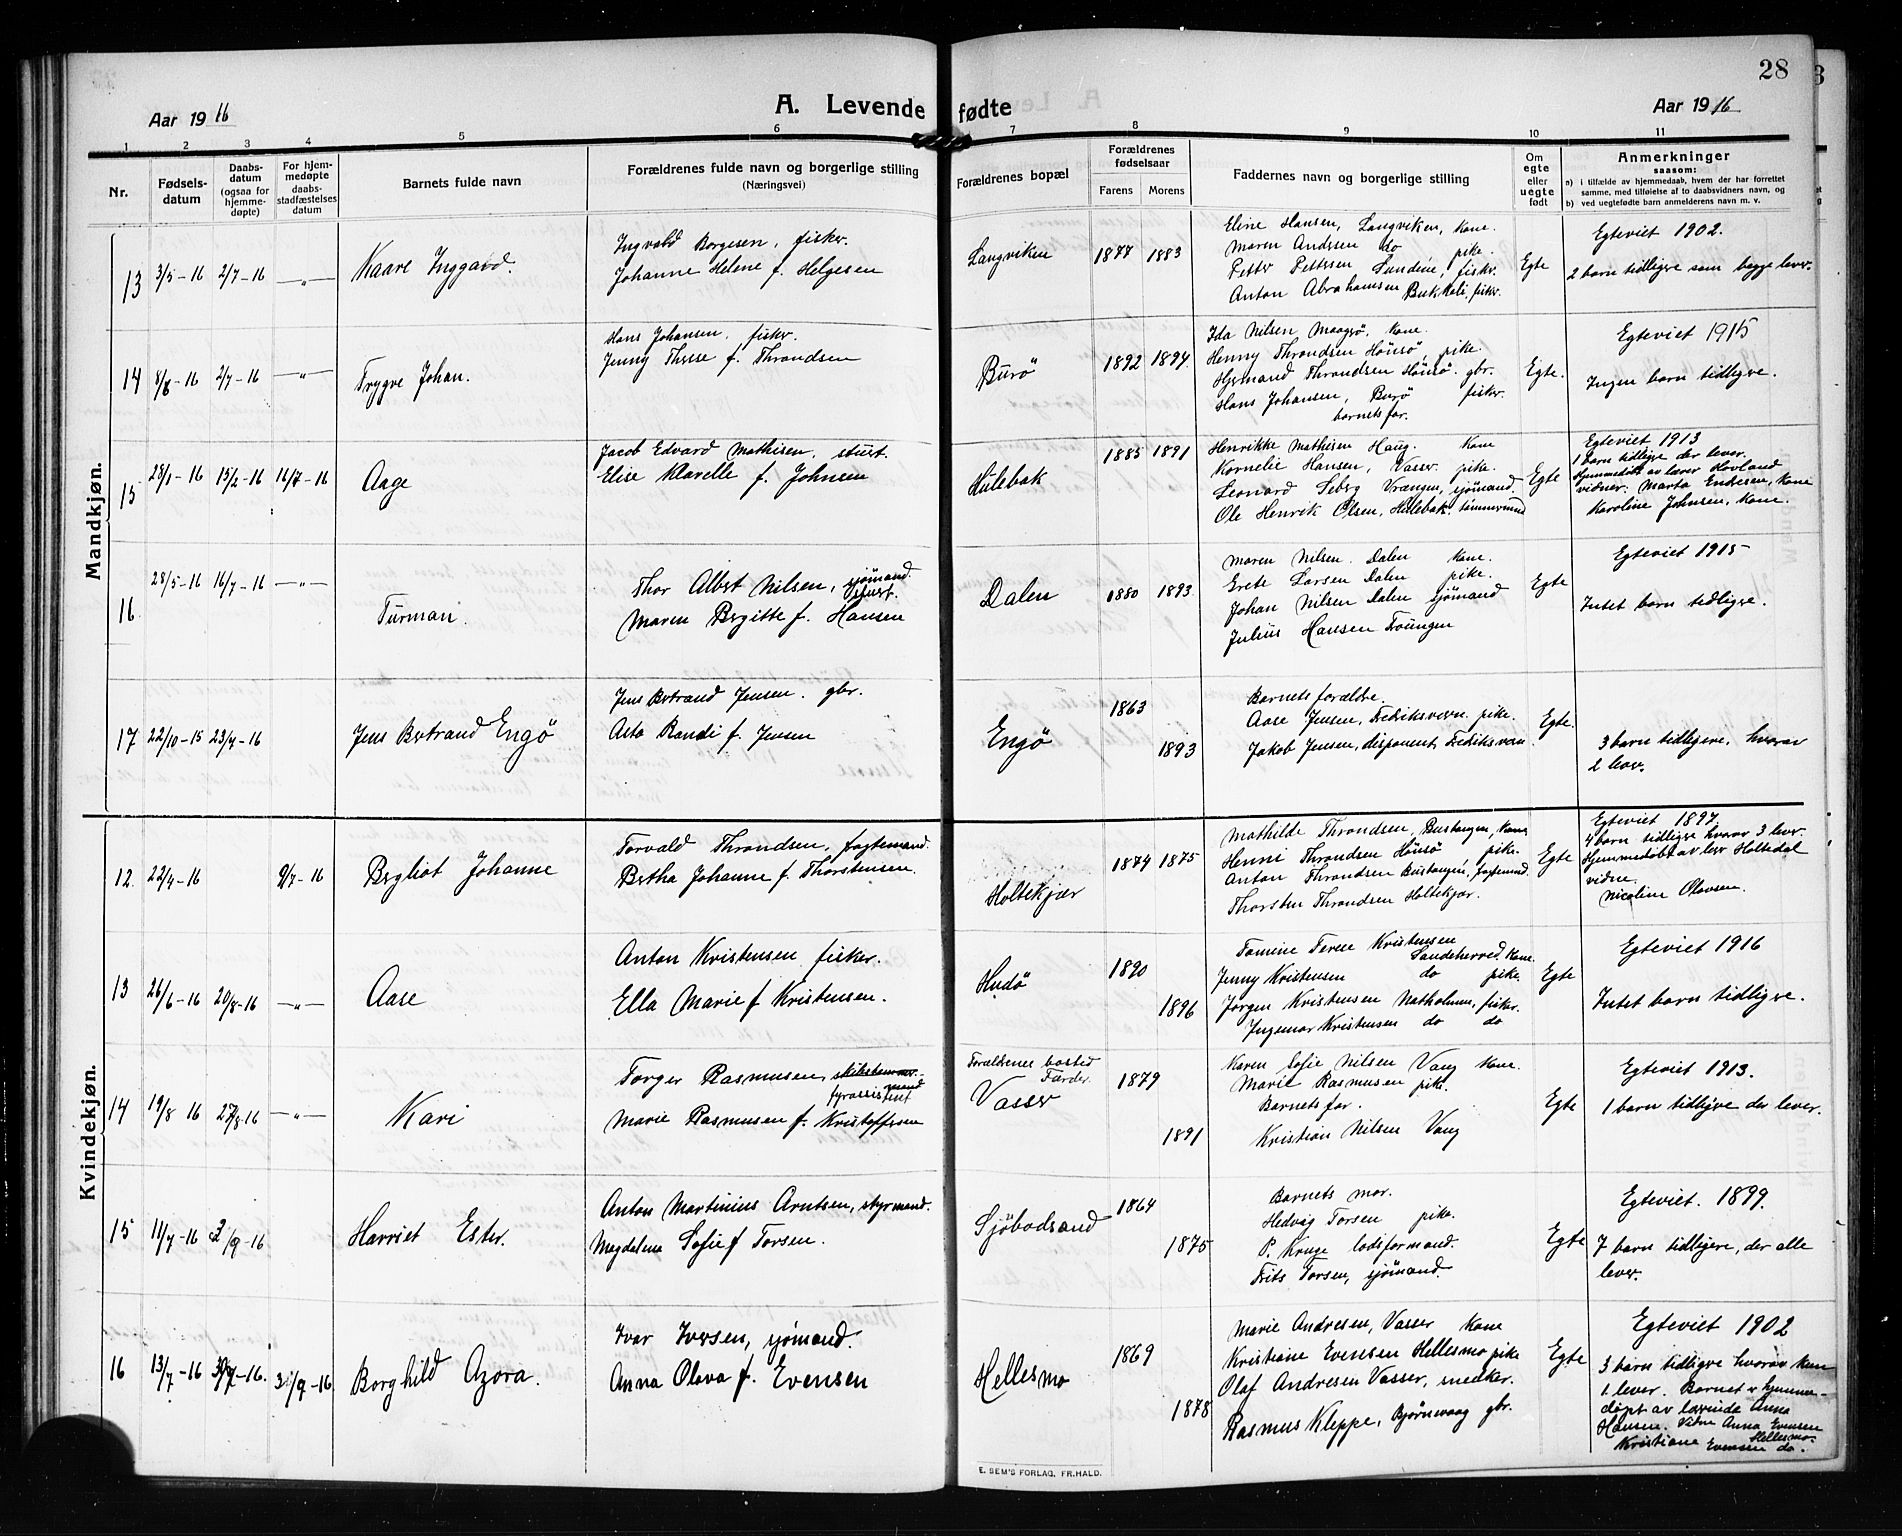 28
Aar 1916
A. Levende fødte
Aar 1916
1 2 3 4 5 6 7 8 9 10 11
Nr.
Fødsels-
datum
Daabs-
datum
(ogsaa for
hjemme-
døpte)
For hjem-
medøpte
daabs-
stadfæstelses
datum
Barnets fulde navn
Forældrenes fulde navn og borgerlige stilling
(Næringsvei)
Forældrenes bopæl
Forældrenes
fødselsaar
Farens Morens
Faddernes navn og borgerlige stilling
Om
egte
eller
uegte
født
Anmerkninger
saasom:
a) i tilfælde av hjemmedaab, hvem der har forrettet
samme, med tilføielse af to daabsvidners navn, og
b) ved uegtefødte barn anmelderens navn m. v.
Mandkjøn.
13 3/5-16 2/7-16 —"—
Kaare Inggard.
Ingvald Borgesen, fisker.
Johanne Helene f. Helgesen
Langviken 1877 1883
Eline Hansen, Langviken, kone.
Maren Andrsen do pike.
Petter Pettersen Sundene, fisker.
Anton Abrahamsen Bukkoli, fisker.
Egte
Egteviet 1902.
2 barn tidligere som begge lever.
14 8/6-16 2/7-16 —"—
Trygve Johan.
Hans Johansen, fisker.
Jenny Therese f. Throndsen
Burö 1892 1894.
Ida Nilsen Maagerö, kone.
Henny Throndsen Hönsö, pike.
Hjermand Throndsen Hönsö. gbr.
Hans Johansen, Burö fisker.
barnets far.
Egte.
Egteviet 1915
Ingen barn tidligere.
15 28/1-16 15/2-16 16/7-16
Aage
Jacob Edvard Mathisen, stuert.
Elise Klarelle f. Johnsen
Hulebak 1885 1891
Henrikke Mathisen Haug. Kone
Kornelie Hansen, Vasser. pike.
Leonard Seberg Vrængen, sjömand.
Ole Henrik Olsen, Hulebak. tömmermand
Egte
Egteviet 1913
1 barn tidligere der lever.
Hjemmedöbt av lærer Hovland
vidner: Marta Endresen, kone
Karoline Johnsen, kone.
16 28/5-16 16/7-16 —"—
Turman.
Thor Albert Nilsen, sjömand.
stuert.
Maren Bergitte f. Hansen
Dalen 1880 1893.
Maren Nilsen. Dalen kone.
Grete Larsen Dalen pike.
Johan Nilsen Dalen sjömand
Julius Hansen
Egte
Egteviet 1915
Intet barn tidligere.
17 22/10-15 23/7-16
Jens Bertrand Engö
Jens Bertrand Jensen. gbr.
Asta Randi f. Jensen
Engö 1863
1893
Barnets forældre.
Aase Jensen, Fredriksvern. pike.
Jakob Jensen, disponent, Fredriksvern
Egte.
3 barn tidligere, hvorav
2 lever.
Kvindekjøn.
12. 22/4-16 9/7-16
Bergliot Johanne
Torvald Throndsen, fogtemand.
Bertha Johanne f. Thorstensen.
Holtekjær 1874 1875
Mathilde Throndsen, Bustangen, kone
Henni Throndsen Hönsö pike.
Anton Throndsen Bustangen, fogtemand.
Thorsten Throndsen Holtekjær.
Egte
Egteviet 1897
4 barn tidligere hvorav 3 lever.
Hjemmedöbt av lærer Holtedal
vidne.
Nicoline Olavsen.
13 26/6-16 20/8-16 —"—
Aase
Anton Kristensen fisker.
Ella Marie f Kristensen.
Hudö 1890
1896
Tomine Terese Kristensen
Sandeherred, kone.
Jenny Kristensen do pike.
Jörgen Kristensen Natholmen, fisker.
Ingemar Kristensen do do
Egte
Egteviet 1916
Intet barn tidligere.
14 19/8 16 27/8-16 —"—
Kari
Torger Rasmusen,
fyrassistent
Marie Rasmusen f. Kristoffersen
Forældrenes bosted
Færder.
Vasser 1879
1891
Karen Sofie Nilsen Vang kone.
Marie Rasmusen pike.
Barnets far.
Kristian Nilsen Vang
Egte
Egteviet 1913.
1 barn tidligere der lever.
15 11/7-16 3/9-16
Harriet Ester.
Anton Martinius Arntsen, styrmand.
Magdalena Sofie f Torsen.
Sjöbodsand 1864
1875
Barnets mor.
Hedvig Torsen pike.
P. Kruge lodsformand.
Frits Torsen, sjömand.
Egte
Egteviet. 1899.
7 barn tidligere, der alle
lever.
16 13/7-16 30/7-16. 3/9-16
Borghild Azora.
Ivar Iversen, sjömand.
Anna Olava f. Evensen
Hellesmo 1869
1878
Marie Andresen, Vasser kone
Kristiane Evensen Hellesmo pike
Olaf Andresen Vasser, snedker.
Rasmus Kleppe, Bjørnevaag gbr.
Egte
Egteviet 1902
3 barn tidligere hvorav kun
1 lever. Barnet er hjemme-
döpt av lærerinde Anna
Hansen. Vidne Anna Evensen
Hellesmo.
Kristiane Evensen do.
E. SEM'S FORLAG, FR.HALD.